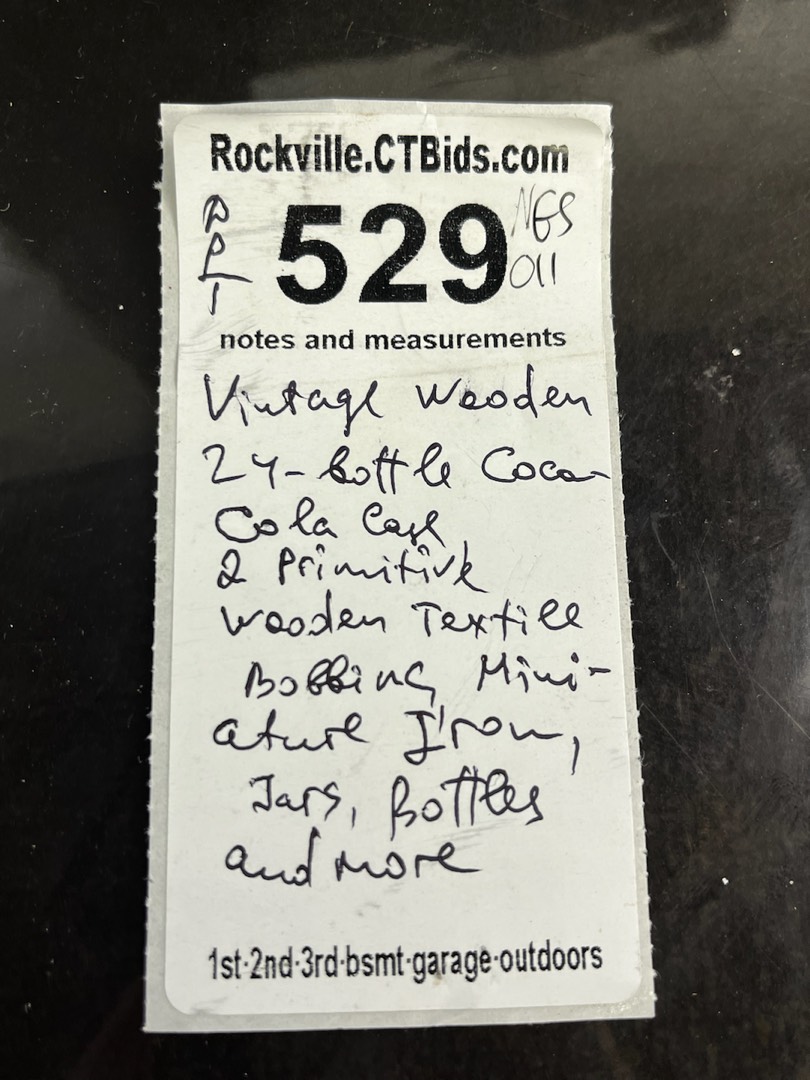 Rockville.CTBids.com
529
NGS
011
notes and measurements
Vintage Wooden
24-bottle Coca-
Cola Case,
2 Primitive
Wooden Textile
Bobbins, Mini-
ature Iron,
Jars, Bottles
and more
1st·2nd·3rd·bsmt·garage·outdoors